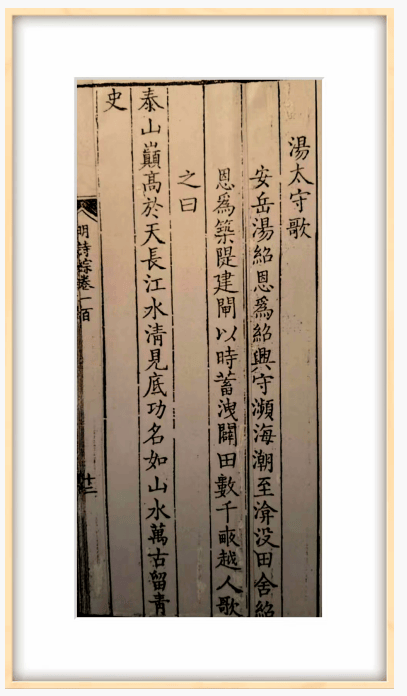 湯太守歌
安岳湯紹恩爲紹興守瀕海潮至渰没田舍紹
恩爲築隄建閘以時蓄洩闢田數千畝越人歌
之曰
泰山巔高於天長江水清見底功名如山水萬古留青
史
明詩綜卷一百
廿二